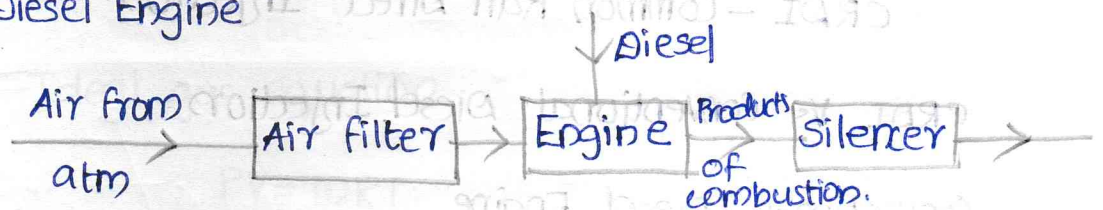 Diesel Engine
Diesel
Air from
atm
Air filter
Engine
Products
of
combustion.
Silencer